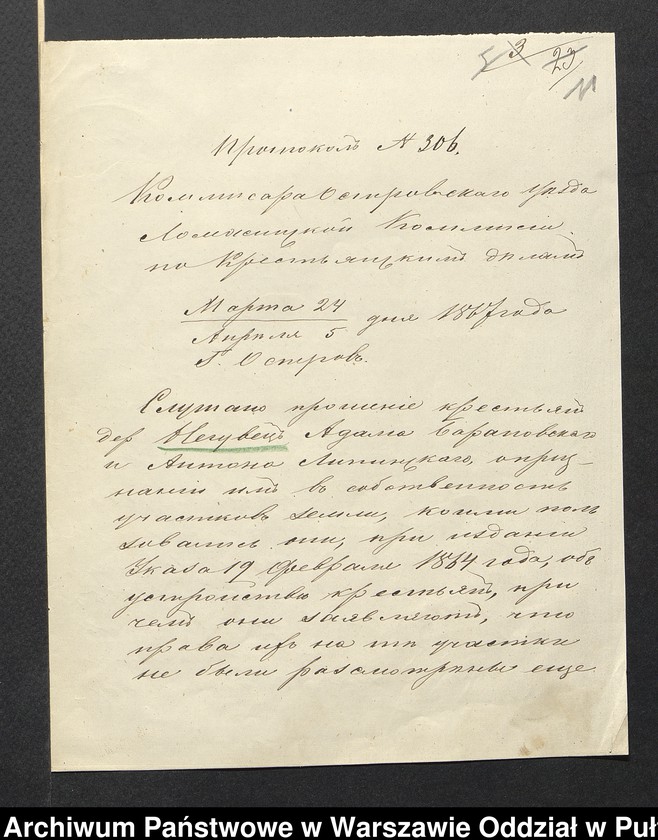 3 23
11
Протоколъ № 306.
Коммисара Островскаго уѣзда
Ломжицкой Коммисіи
по Крестьянскимъ дѣламъ
Марта 24
Апрѣля 5 дня 1867 года
Г. Островъ.
Слушано прошеніе крестьянъ
дер. Адама Барановскаго
и Антона Липинскаго, о приз-
наніи имъ въ собственность
участковъ земли, коими поль
зовались они, при изданіи
Указа 19 Февраля 1864 года, объ
устройствѣ крестьянъ, при
чемъ они заявляютъ, что
права ихъ на тѣ участки
не были разсмотрѣны еще
Archiwum Państwowe w Warszawie Oddział w Puł